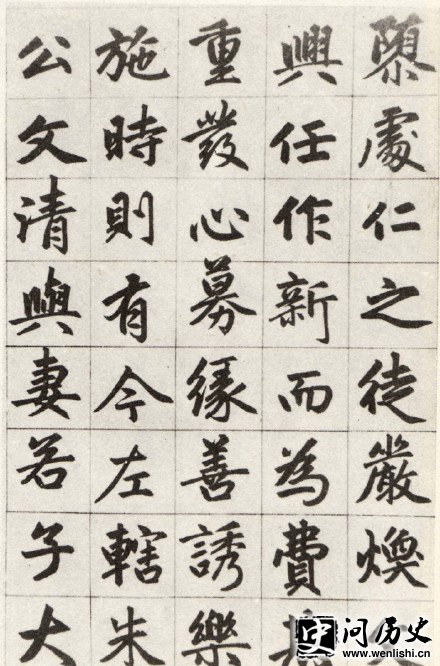 處仁之徒嚴煥
興任作新而為費
重發心募緣善誘樂
施時則有今左轄朱
公文清與妻若子大
中问历史
www.wenlishi.cn